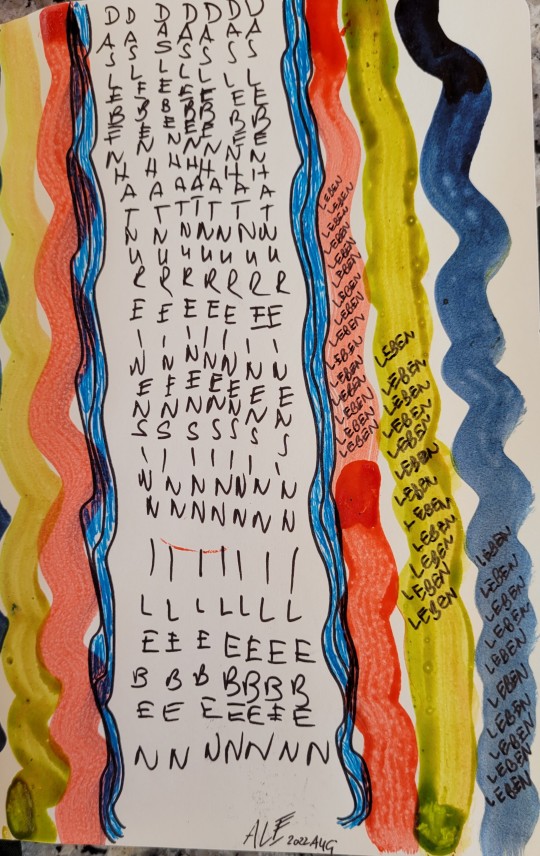 DAS LEBEN HAT NUR EINEN SINN | LEBEN
DAS LEBEN HAT NUR EINEN SINN | LEBEN
DAS LEBEN HAT NUR EINEN SINN | LEBEN
DAS LEBEN HAT NUR EINEN SINN | LEBEN
DAS LEBEN HAT NUR EINEN SINN | LEBEN
DAS LEBEN HAT NUR EINEN SINN | LEBEN
DAS LEBEN HAT NUR EINEN SINN | LEBEN
LEBEN
LEBEN
LEBEN
LEBEN
LEBEN
LEBEN
LEBEN
LEBEN
LEBEN
LEBEN
LEBEN
LEBEN
LEBEN
LEBEN
LEBEN
LEBEN
LEBEN
LEBEN
LEBEN
LEBEN
LEBEN
LEBEN
LEBEN
LEBEN
LEBEN
LEBEN
LEBEN
LEBEN
LEBEN
LEBEN
LEBEN
LEBEN
LEBEN
LEBEN
LEBEN
LEBEN
LEBEN
ALE 2022 AUG